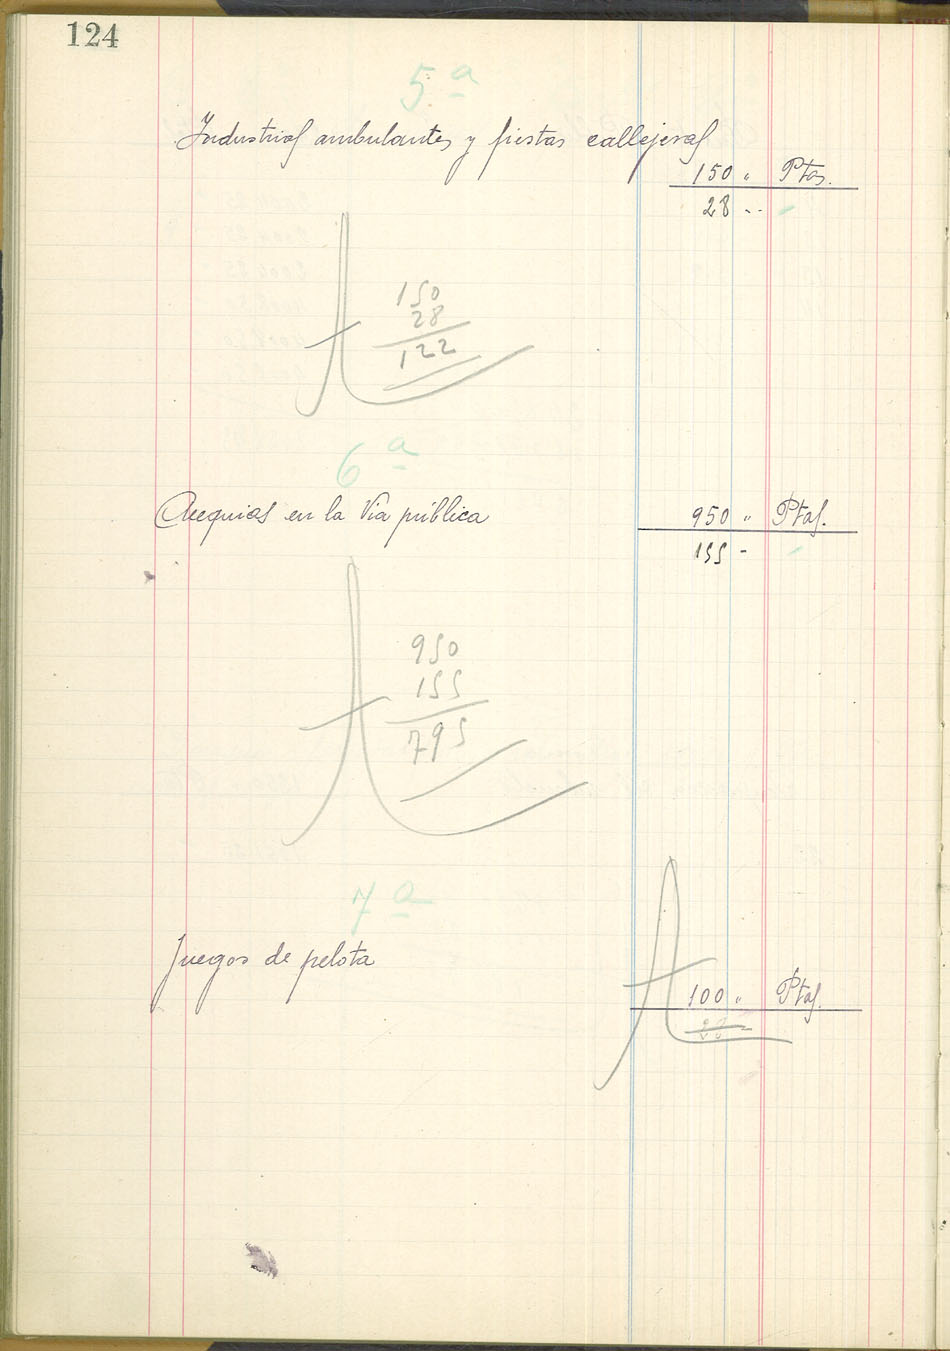 124
5.ª
Industrias ambulantes y fiestas callejeras
150 " Ptas.
28 --
150
28
122
6ª
en la Via pública
950 " Ptas.
155 -
950
155
795
7ª
Juegos de pelota
100 " Ptas.